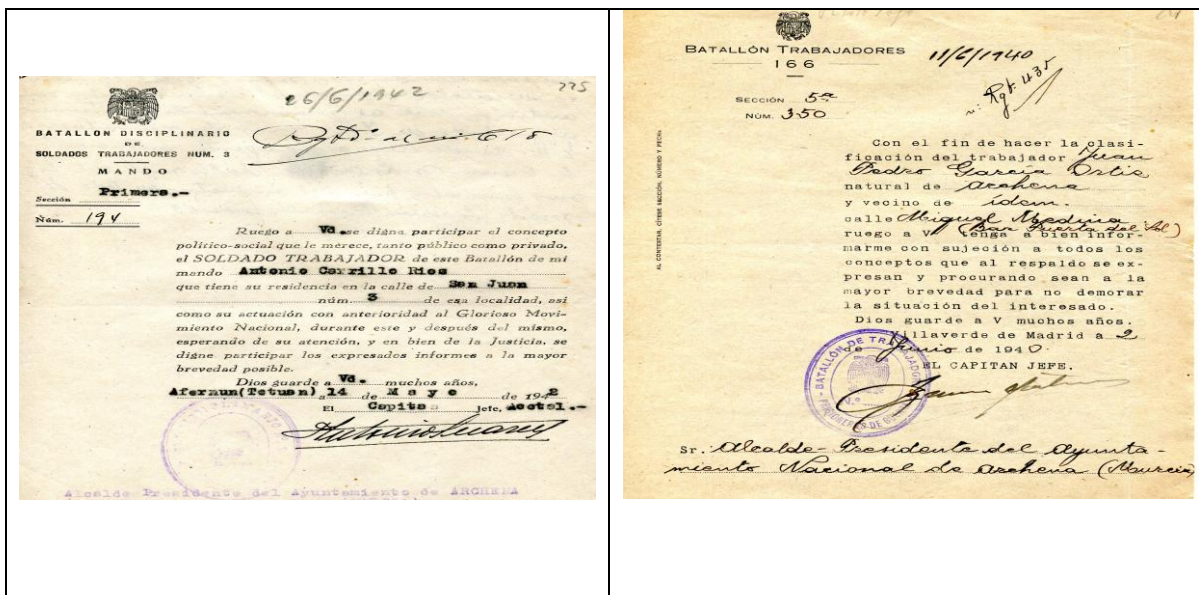 26/6/1942
225
BATALLON DISCIPLINARIO
DE
SOLDADOS TRABAJADORES NUM. 3
MANDO
Sección Primera.-
Núm. 194
Ruego a Vd. se digne participar el concepto
político-social que le merece, tanto público como privado,
el SOLDADO TRABAJADOR de este Batallón de mi
mando Antonio Carrillo Rios
que tiene su residencia en la calle de San Juan
núm. 3 de esa localidad, así
como su actuación con anterioridad al Glorioso Movi-
miento Nacional, durante este y después del mismo,
esperando de su atención, y en bien de la Justicia, se
digne participar los expresados informes a la mayor
brevedad posible.
Dios guarde a Vd. muchos años,
Afernun(Tetuan) 14 de Mayo de 1942
El Capitan Jefe, Acctal.-
Alcalde Presidente del Ayuntamiento de ARCHENA
BATALLÓN TRABAJADORES
166
11/6/1940
Rgt. 435
SECCIÓN 5ª
NÚM. 350
AL CONTESTAR, CÍTESE SECCIÓN, NÚMERO Y FECHA
Con el fin de hacer la clasi-
ficación del trabajador Juan
Pedro García Ortiz
natural de Archena
y vecino de ídem.
calle Miguel Medina
(Bar Puerta del Sol)
ruego a V tenga a bien infor-
marme con sujeción a todos los
conceptos que al respaldo se ex-
presan y procurando sean a la
mayor brevedad para no demorar
la situación del interesado.
Dios guarde a V muchos años.
Villaverde de Madrid a 2
de Junio de 1940.
EL CAPITAN JEFE.
BATALLÓN DE TRABAJADORES
Sr. Alcalde-Presidente del Ayunta-
miento Nacional de Archena (Murcia)